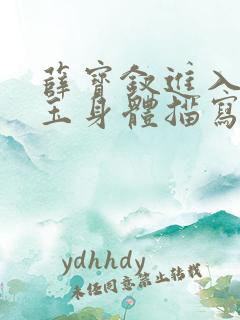 薛寳釵進入
玉身體描寫
ydhhdy
未经同意禁止转载